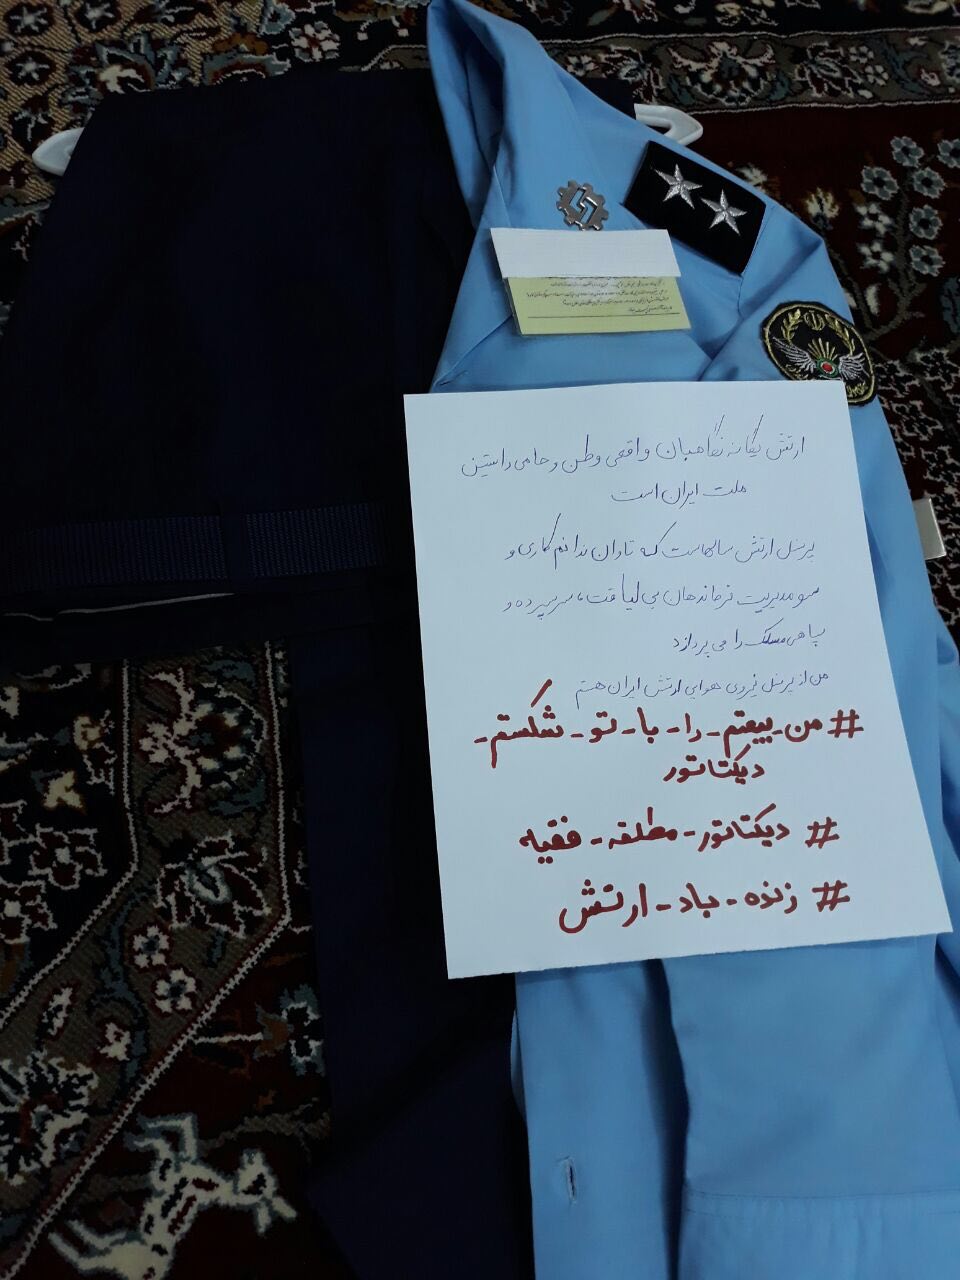 ارتش یگانه نگاهبان واقعی وطن و حامی راستین
ملت ایران است
پرسنل ارتش سالهاست که تاوان ندانم کاری و
سو مدیریت فرماندهان بی لیاقت، سرسپرده و
سپاهی مسلک را می پردازد
من از پرسنل نیروی هوایی ارتش ایران هستم
# من_بیعتم_را_با_تو_شکستم_
دیکتاتور
# دیکتاتور_مطلقه_فقیه
# زنده_باد_ارتش